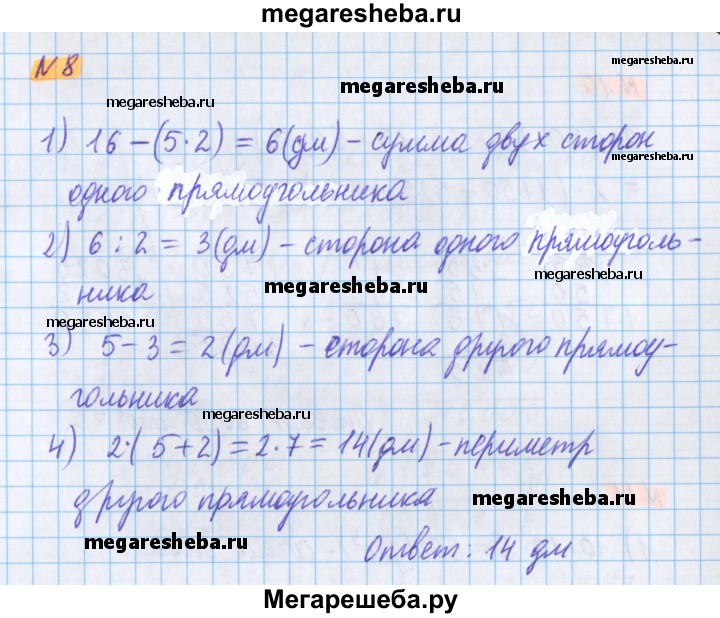 megaresheba.ru
N 8
megaresheba.ru
megaresheba.ru
megaresheba.ru
1) 16 - (5·2) = 6(дм) - сумма двух сторон
megaresheba.ru
одного прямоугольника
2) 6 : 2 = 3(дм) - сторона одного прямоуголь-
megaresheba.ru
ника
megaresheba.ru
megaresheba.ru
3) 5 - 3 = 2(дм) - сторона другого прямоу-
гольника
megaresheba.ru
4) 2·(5+2) = 2·7 = 14(дм) - периметр
другого прямоугольника
megaresheba.ru
megaresheba.ru
Ответ: 14 дм
Мегарешеба.ру